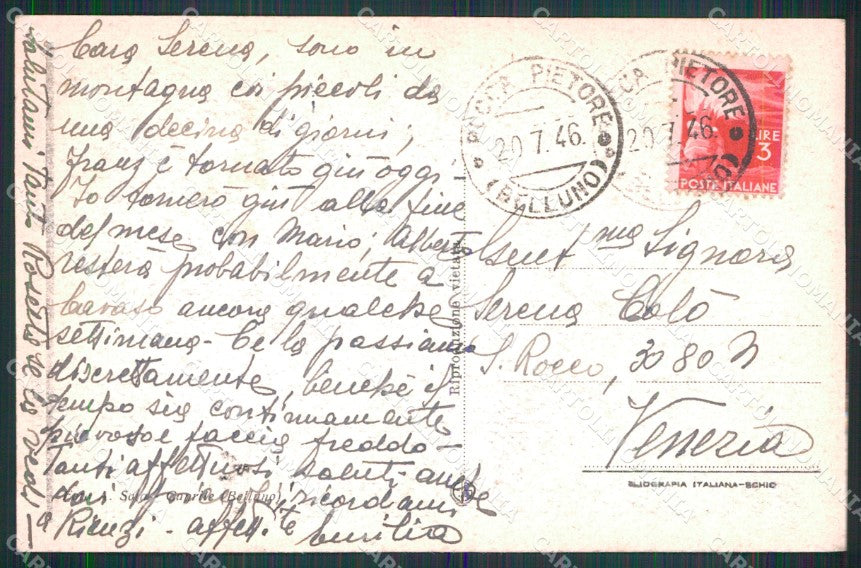 Cara Serena, sono in
montagna coi piccoli da
una decina di giorni;
Franz è tornato giù oggi.
Io tornerò giù alla fine
del mese con Mario; Alberto
resterà probabilmente a
ancora qualche
settimana - Ce la passiamo
discretamente, benchè il
tempo sia continuamente
piovoso e faccia freddo -
Tanti affettuosi saluti - anche
ricordami
Rienzi - aff.te
salutami tanti se la vedi -
ROCCA PIETORE
20.7.46.
(BELLUNO)
PIETORE
20.7.46.
LIRE
3
POSTE ITALIANE
Gent.ma Signora
Serena Colò
S. Rocco, 3080 N
Venezia
Riproduzione vietata
Caprile (Belluno)
ELIOGRAFIA ITALIANA-SCHIO
CARTOLINOMANIA